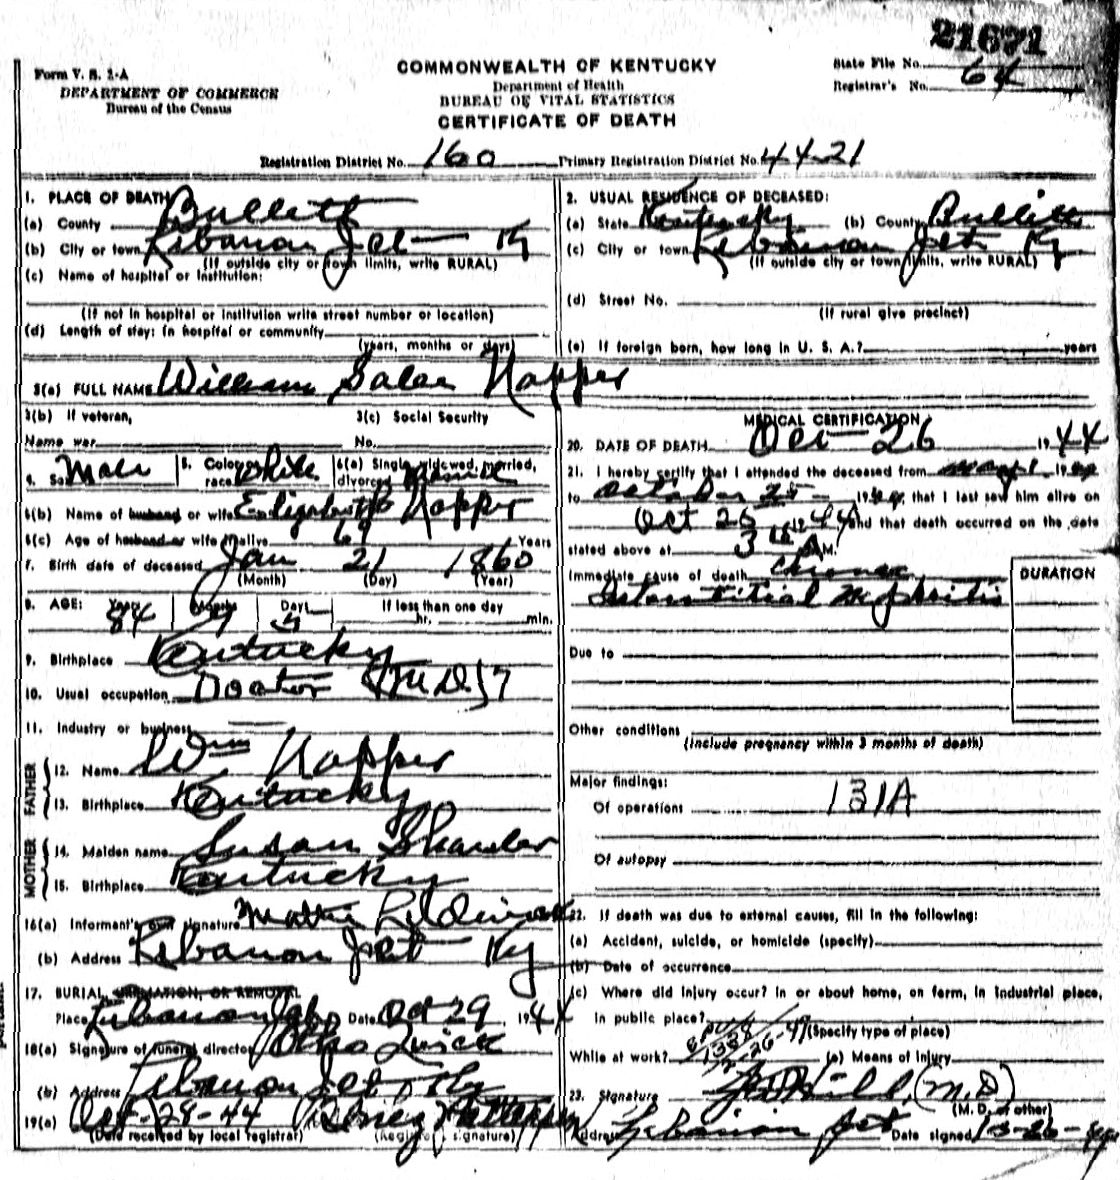 21671
Form V. S. 1-A
DEPARTMENT OF COMMERCE
Bureau of the Census
COMMONWEALTH OF KENTUCKY
Department of Health
BUREAU OF VITAL STATISTICS
CERTIFICATE OF DEATH
State File No.
Registrar's No. 64
Registration District No. 160 Primary Registration District No. 4421
1. PLACE OF DEATH
(a) County Bullitt
(b) City or town Lebanon Jct Ky
(If outside city or town limits, write RURAL)
(c) Name of hospital or institution:
(If not in hospital or institution write street number or location)
(d) Length of stay: In hospital or community
(years, months or days)
2. USUAL RESIDENCE OF DECEASED:
(a) State Kentucky (b) County Bullitt
(c) City or town Lebanon Jct Ky
(If outside city or town limits, write RURAL)
(d) Street No.
(If rural give precinct)
(e) If foreign born, how long in U. S. A.? years
3(a) FULL NAME William Napper
3(b) If veteran,
Name war
3(c) Social Security
No.
4. Sex Male 5. Color or race White 6(a) Single, widowed, married,
divorced
6(b) Name of husband or wife Elizabeth Napper
6(c) Age of husband or wife if alive 69 Years
7. Birth date of deceased Jan 21 1860
(Month) (Day) (Year)
8. AGE: Years 84 Months 9 Days 5 If less than one day
hr. min.
9. Birthplace Kentucky
10. Usual occupation Doctor (M D)
11. Industry or business
FATHER
12. Name Wm Napper
13. Birthplace Kentucky
MOTHER
14. Maiden name Susan
15. Birthplace Kentucky
16(a) Informant's own signature
(b) Address Lebanon Jct Ky
17. BURIAL, CREMATION, OR REMOVAL
Place Lebanon Jct Date Oct 29 1944
18(a) Signature of funeral director
(b) Address Lebanon Jct Ky
19(a) Oct-28-44
(Date received by local registrar) (Registrar's signature)
MEDICAL CERTIFICATION
20. DATE OF DEATH Oct 26 1944
21. I hereby certify that I attended the deceased from 19
to October 25 1944, that I last saw him alive on
Oct 25 1944 and that death occurred on the date
stated above at 3 A M.
Immediate cause of death Chronic
Interstitial Nephritis
DURATION
Due to
Other conditions
(Include pregnancy within 3 months of death)
Major findings:
Of operations 131A
Of autopsy
22. If death was due to external causes, fill in the following:
(a) Accident, suicide, or homicide (specify)
(b) Date of occurrence
(c) Where did injury occur? In or about home, on farm, in industrial place,
in public place?
(Specify type of place)
While at work? (e) Means of injury
23. Signature (M.D)
(M. D. or other)
Address Lebanon Jct Date signed